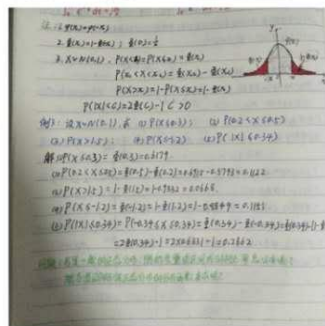 注: 1. φ(x)=φ(-x)
2. Φ(x)=1-Φ(-x); Φ(0)=½
3. X~N(0,1), P(X<x)=P(X≤x)=Φ(x)
P(x₁<X<x₂)=Φ(x₂)-Φ(x₁)
P(X>x)=1-P(X≤x)=1-Φ(x)
P(|X|<c)=2Φ(c)-1 c>0
例1: 设X~N(0,1), 求 (1) P(X≤0.3); (2) P(0.2<X≤0.5)
(3) P(X>1.5); (4) P(X≤-1.2) (5) P(|X|≤0.34)
解: (1) P(X≤0.3)=Φ(0.3)=0.6179
(2) P(0.2<X≤0.5)=Φ(0.5)-Φ(0.2)=0.6915-0.5793=0.1122
(3) P(X>1.5)=1-Φ(1.5)=1-0.9332=0.0668
(4) P(X≤-1.2)=Φ(-1.2)=1-Φ(1.2)=1-0.8849=0.1151
(5) P(|X|≤0.34)=P(-0.34≤X≤0.34)=Φ(0.34)-Φ(-0.34)=Φ(0.34)-[1-Φ
=2Φ(0.34)-1=2×0.6331-1=0.2662